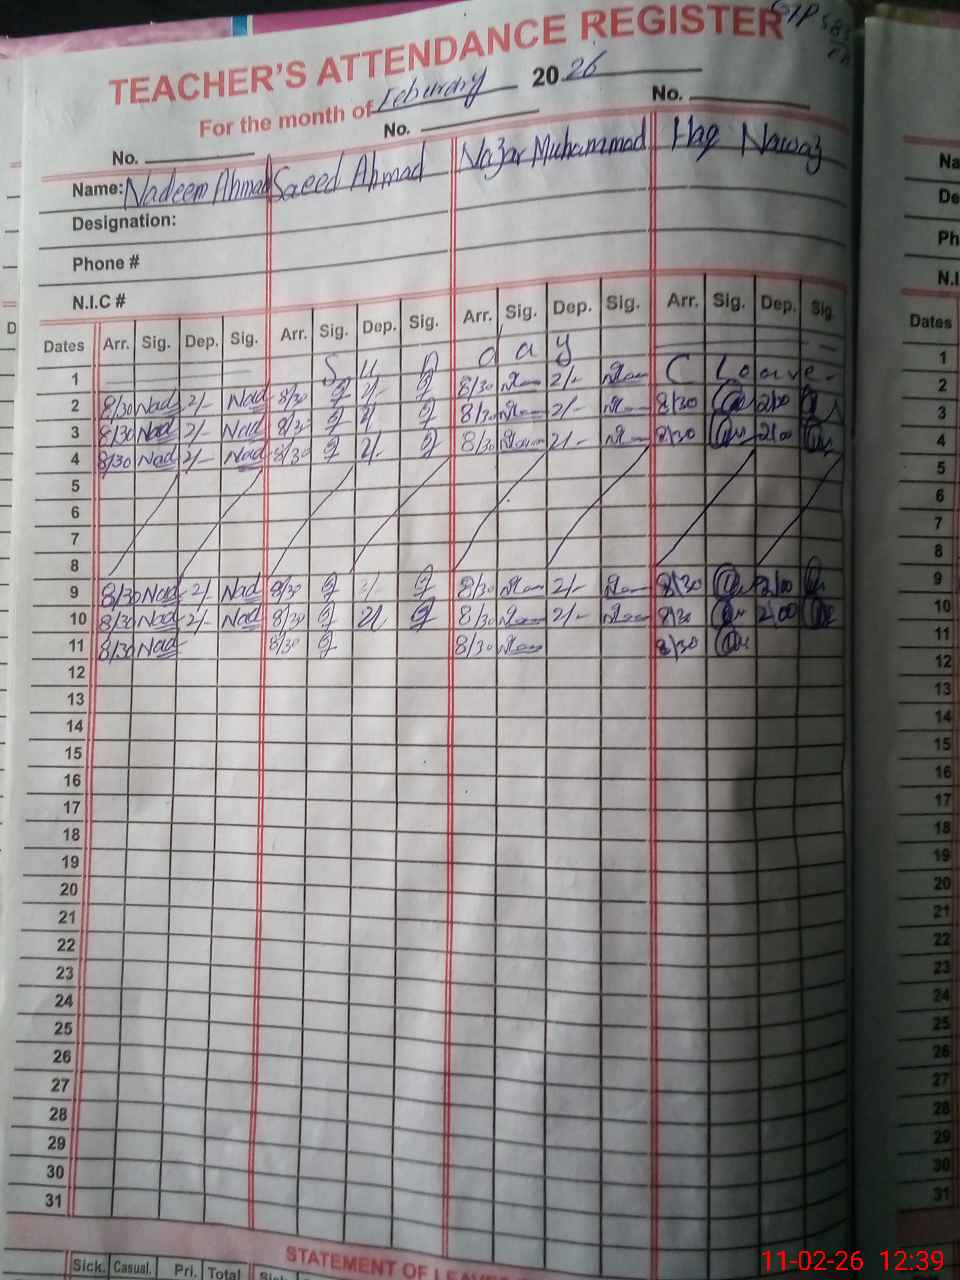 TEACHER'S ATTENDANCE REGISTER
For the month of Feburary 2026
No. No. No.
Name: Nadeem Ahmad Saeed Ahmad Nazar Muhammad Haq Nawaz
Designation:
Phone #
N.I.C #
Dates Arr. Sig. Dep. Sig. Arr. Sig. Dep. Sig. Arr. Sig. Dep. Sig. Arr. Sig. Dep. Sig.
1 Sunday
2 8/30 Nad 2/- Nad 8/30 2/- 8/30 2/- C Leave
3 8/30 Nad 2/- Nad 8/30 2/- 8/30 2/- 8/30 2/00
4 8/30 Nad 2/- Nad 8/30 2/- 8/30 2/- 8/30 2/00
5
6
7
8
9 8/30 Nad 2/- Nad 8/30 2/- 8/30 2/- 8/30 2/00
10 8/30 Nad 2/- Nad 8/30 2/- 8/30 2/- 8/30 2/00
11 8/30 Nad 8/30 8/30 8/30
12
13
14
15
16
17
18
19
20
21
22
23
24
25
26
27
28
29
30
31
STATEMENT OF
Sick. Casual. Pri. Total
Na
De
Ph
N.I
Dates
1
2
3
4
5
6
7
8
9
10
11
12
13
14
15
16
17
18
19
20
21
22
23
24
25
26
27
28
29
30
31
11-02-26 12:39